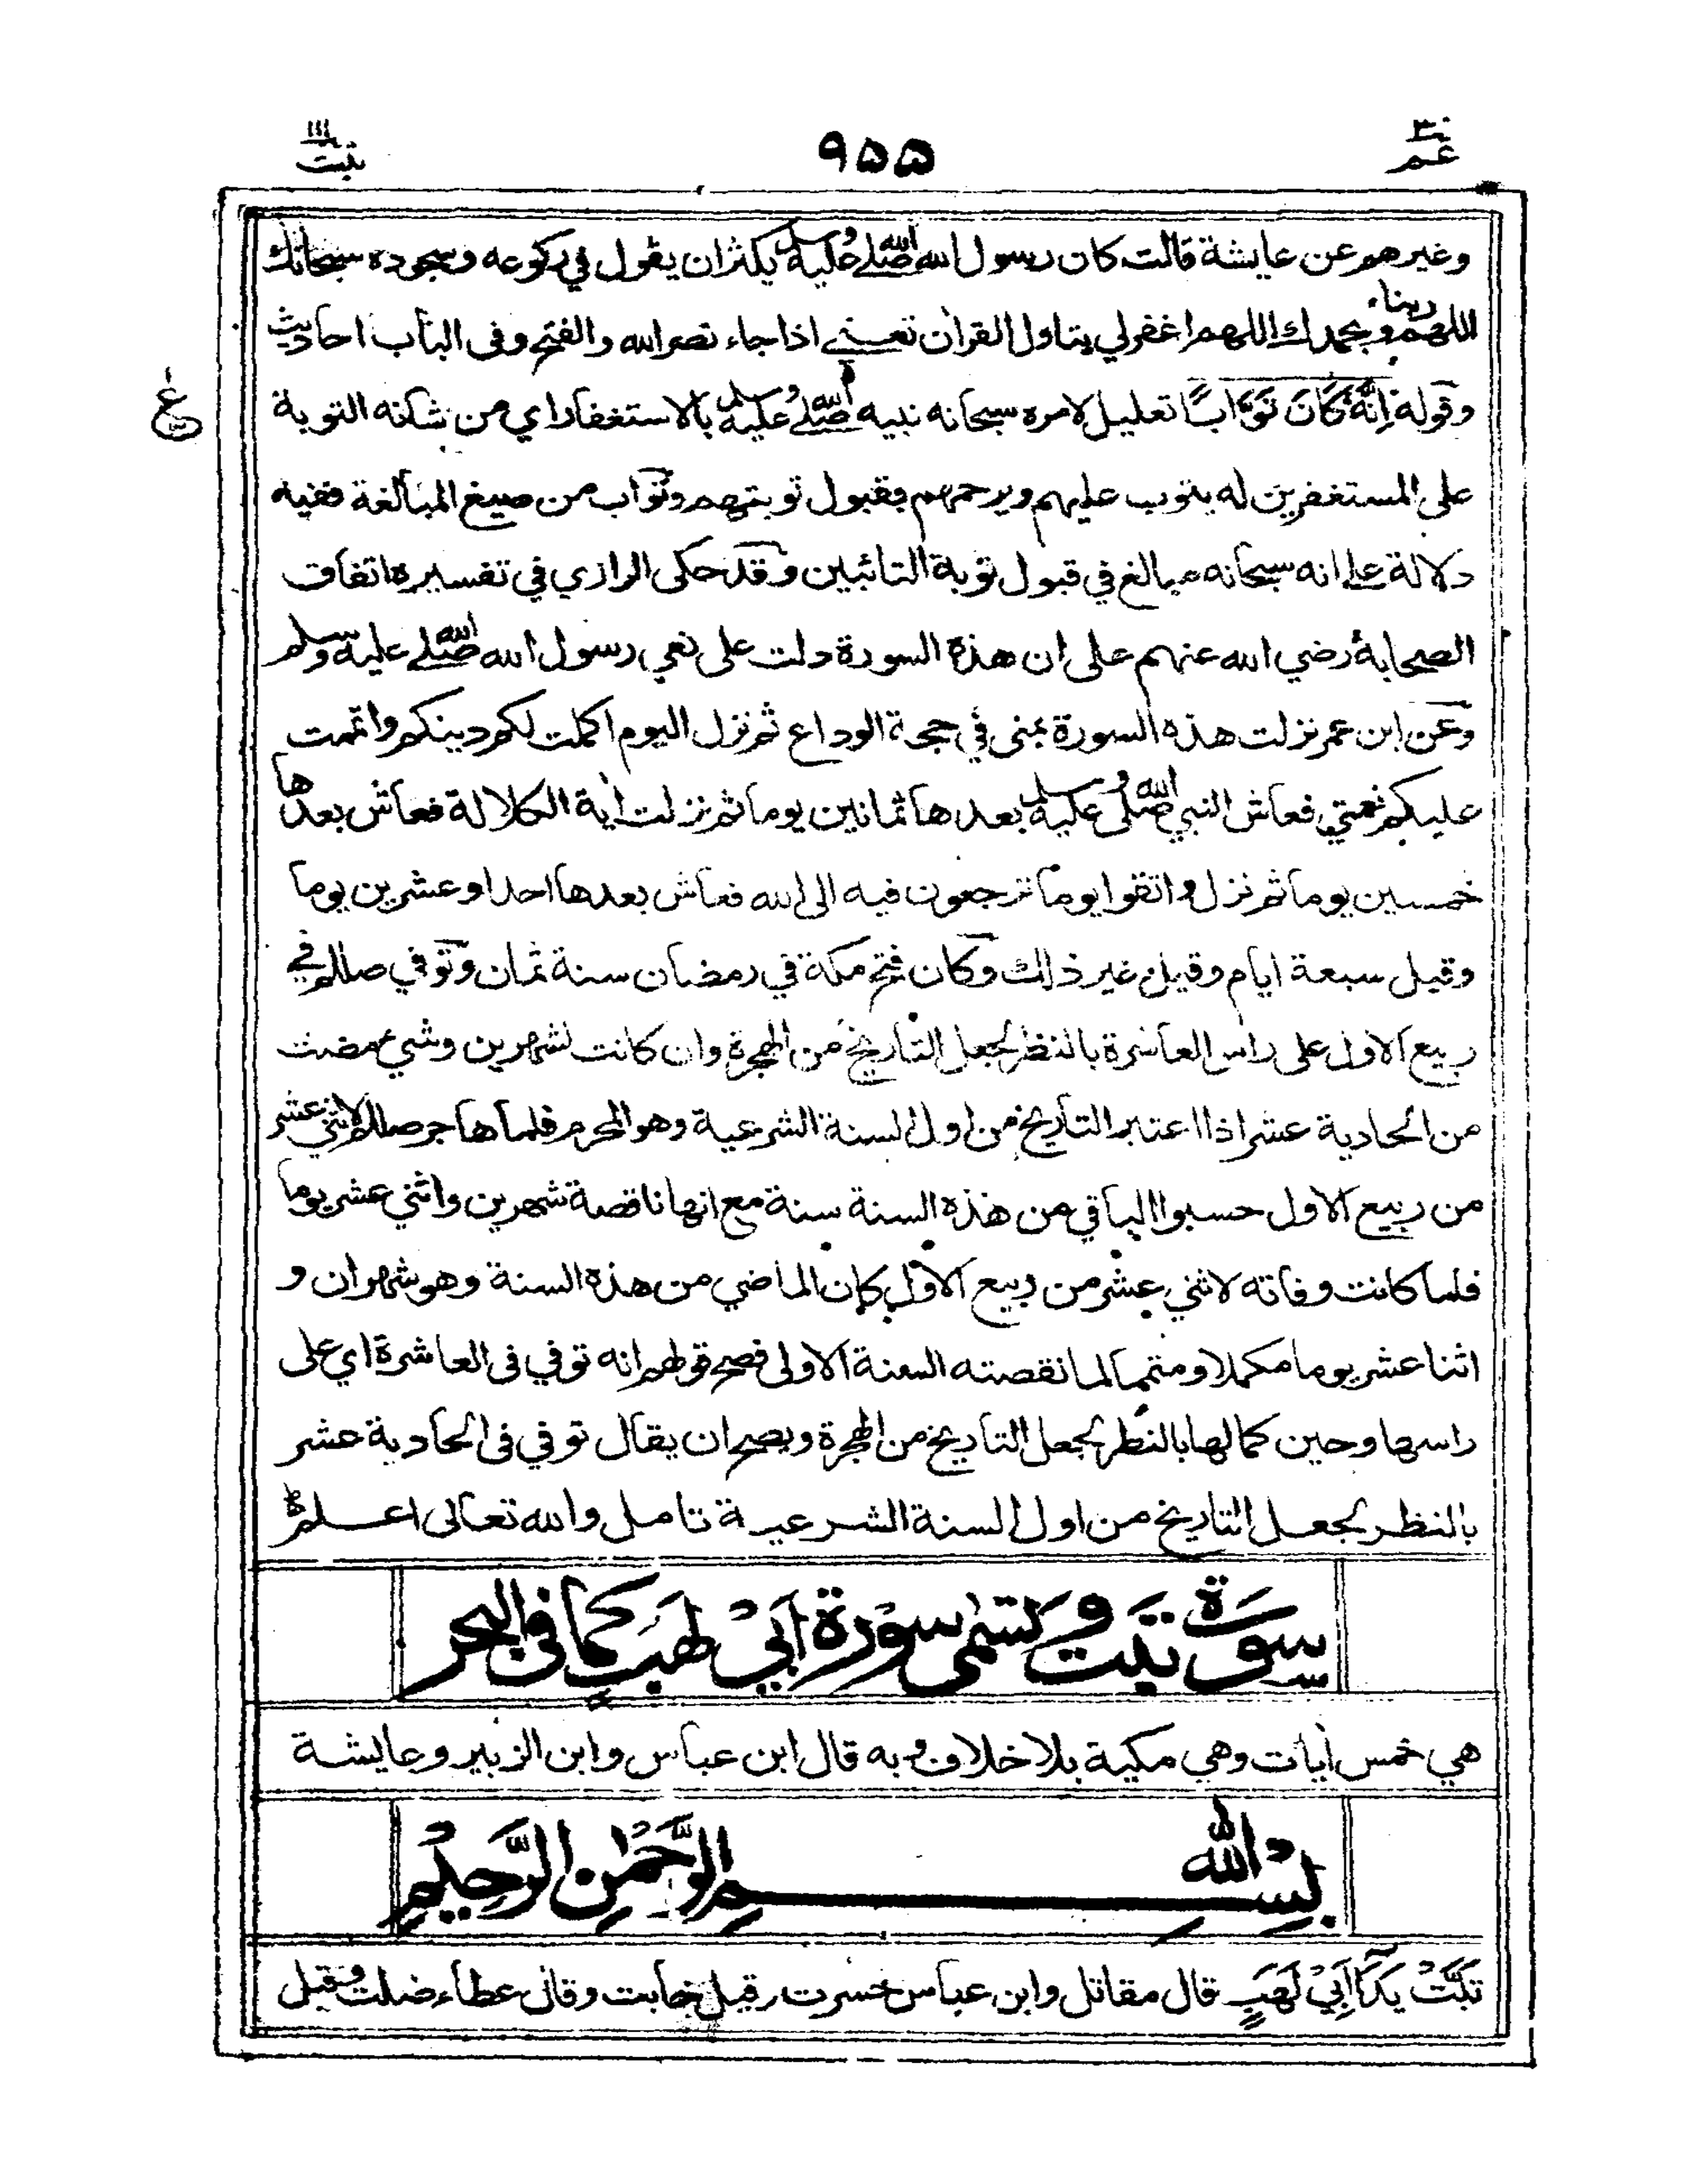 عم ٣٠
٩٥٥
تبت ١١١
وغيرهم عن عايشة قالت كان رسول الله صلى الله عليه وسلم يكثر ان يقول في ركوعه وسجوده سبحانك
اللهم ربنا وبحمدك اللهم اغفرلي يتاول القران تعني اذا جاء نصر الله والفتح وفى الباب احاديث
وقوله اِنَّهٗ كَانَ تَوَّابًا تعليل لامره سبحانه نبيه صلى الله عليه وسلم بالاستغفار اي من شانه التوبة
على المستغفرين له يتوب عليهم ويرحمهم بقبول توبتهم وتواب من صيغ المبالغة ففيه
دلالة على انه سبحانه مبالغ في قبول توبة التائبين وقد حكى الرازي في تفسيره اتفاق
الصحابة رضي الله عنهم على ان هذه السورة دلت على نعي رسول الله صلى الله عليه وسلم
وعن ابن عمر نزلت هذه السورة بمنى في حجة الوداع ثم نزل اليوم اكملت لكم دينكم واتممت
عليكم نعمتي فعاش النبي صلى الله عليه وسلم بعدها ثمانين يوما ثم نزلت اية الكلالة فعاش بعدها
خمسين يوما ثم نزل واتقوا يوما ترجعون فيه الى الله فعاش بعدها احدا وعشرين يوما
وقيل سبعة ايام وقيل غير ذلك وكان فتح مكة في رمضان سنة ثمان وتوفي صللم في
ربيع الاول على راس العاشرة بالنظر لجعل التاريخ من الهجرة وان كانت لشهرين وشيء مضت
من الحادية عشر اذا اعتبر التاريخ من اول السنة الشرعية وهو المحرم فلما هاجر صللم لاثني عشر
من ربيع الاول حسبوا الباقي من هذه السنة سنة مع انها ناقصة شهرين واثني عشر يوما
فلما كانت وفاته لاثني عشر من ربيع الاول كان الماضي من هذه السنة وهو شهران و
اثنا عشر يوما مكملا ومتمما لما نقصته السنة الاولى فصح قولهم انه توفي فى العاشرة اي على
راسها وحين كمالها بالنظر لجعل التاريخ من الهجرة ويصح ان يقال توفي فى الحادية عشر
بالنظر لجعل التاريخ من اول السنة الشرعية تامل والله تعالى اعلم
سورة تبت وتسمى سورة ابي لهب كما فى البحر
هي خمس ايات وهي مكية بلا خلاف وبه قال ابن عباس وابن الزبير وعايشة
بِسْمِ اللهِ الرَّحْمٰنِ الرَّحِيْمِ
تَبَّتْ يَدَا اَبِيْ لَهَبٍ قال مقاتل وابن عباس خسرت وقيل خابت وقال عطاء ضلت وقيل